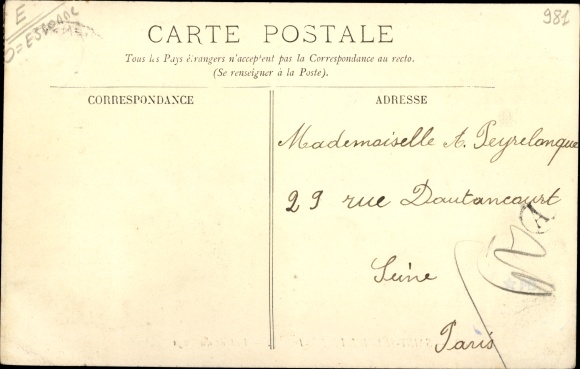 E
981
CARTE POSTALE
Tous les Pays étrangers n'acceptent pas la Correspondance au recto.
(Se renseigner à la Poste).
CORRESPONDANCE
ADRESSE
Mademoiselle A. Peyrelongue
29 rue Dautancourt
A
Seine
Paris